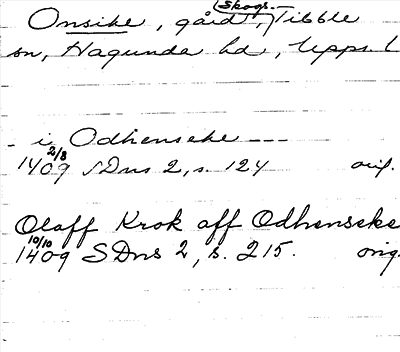 Onsike, gård, (Skogs-) Tibble
sn, Hagunda hd, Upps. l
- i Odhenseke ---
2/8
1409 SDns 2, s. 124 orig.
Olaff Krok aff Odhenseke
10/10
1409 SDns 2, s. 215. orig.